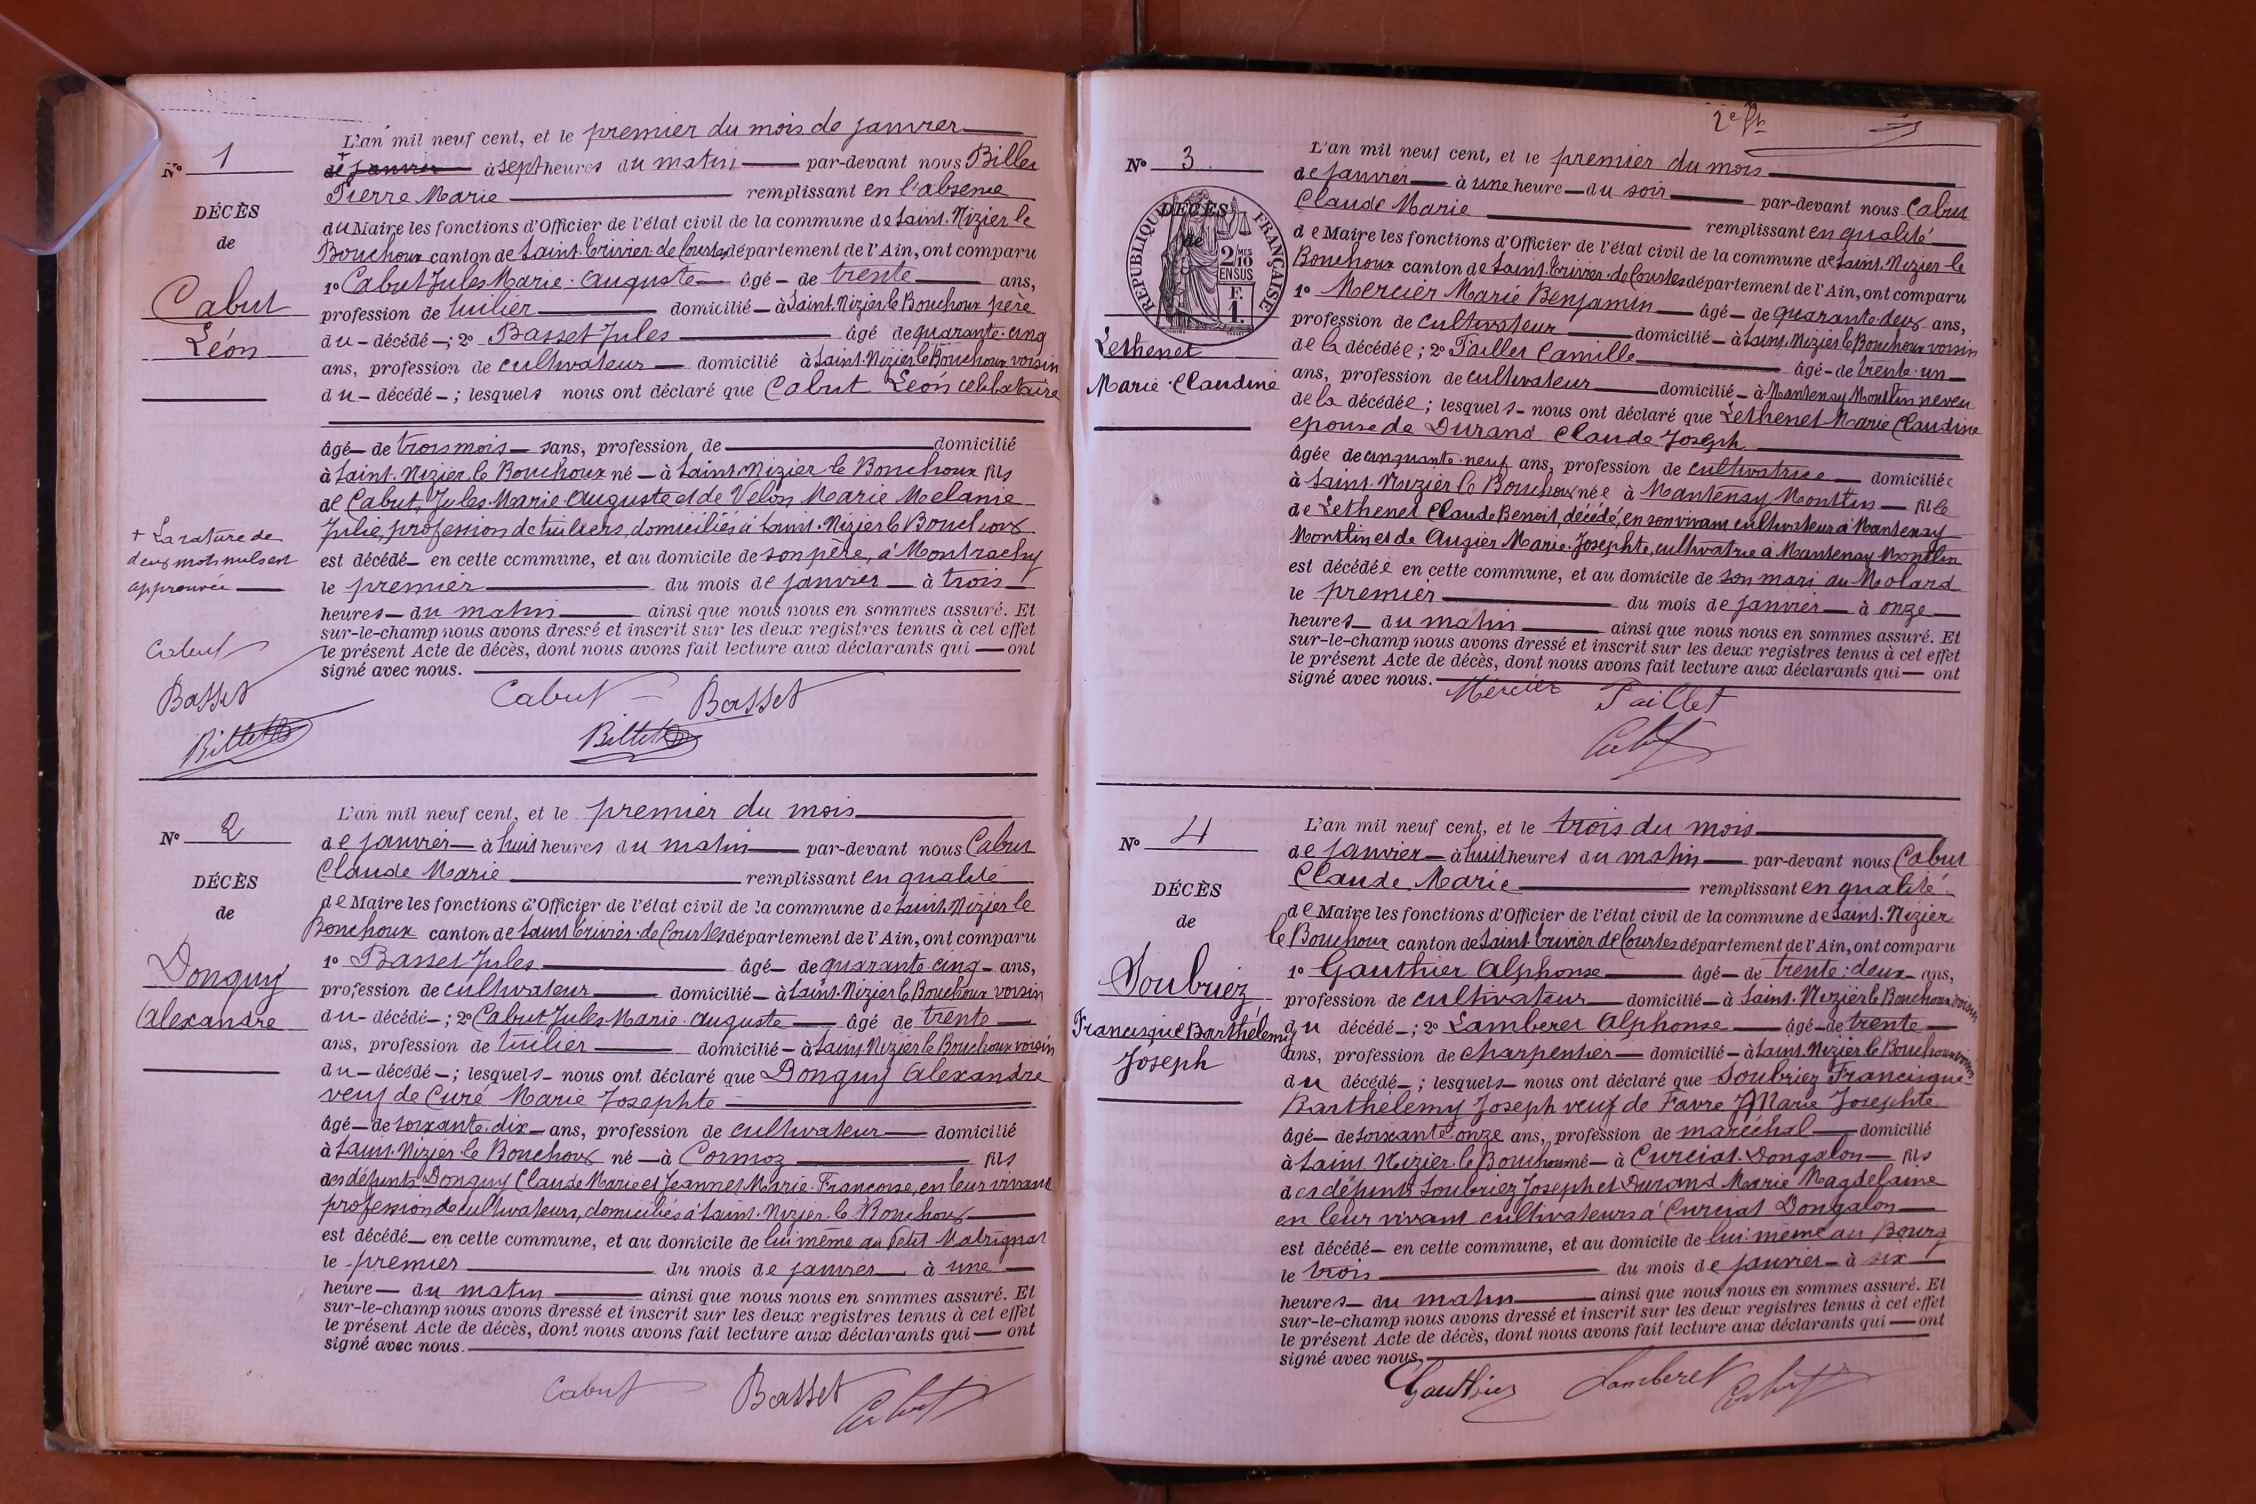 N° 1
DÉCÈS
de
Cabut
Léon
L'an mil neuf cent, et le premier du mois de janvier
de janvier à sept heures du matin par-devant nous Billet
Pierre Marie remplissant en l'absence
du Maire les fonctions d'Officier de l'état civil de la commune de Saint-Nizier le
Bouchoux canton de Saint-Trivier de Courtes département de l'Ain, ont comparu
1° Cabut Jules Marie-Auguste âgé de trente ans,
profession de tuilier domicilié à Saint-Nizier le Bouchoux père
du décédé; 2° Basset Jules âgé de quarante-cinq
ans, profession de cultivateur domicilié à Saint-Nizier le Bouchoux voisin
du décédé; lesquels nous ont déclaré que Cabut Léon célibataire
âgé de trois mois sans, profession de domicilié
à Saint-Nizier le Bouchoux né à Saint-Nizier le Bouchoux fils
de Cabut, Jules Marie Auguste et de Velon Marie Mélanie
Julie, profession de tuiliers, domiciliés à Saint-Nizier le Bouchoux
est décédé en cette commune, et au domicile de son père, à Montrachy
le premier du mois de janvier à trois
heures du matin ainsi que nous nous en sommes assuré. Et
sur-le-champ nous avons dressé et inscrit sur les deux registres tenus à cet effet
le présent Acte de décès, dont nous avons fait lecture aux déclarants qui ont
signé avec nous.
+ La rature de
deux mots nuls est
approuvée
Cabut
Basset
Billet
Cabut Basset
Billet
N° 2
DÉCÈS
de
Donguy
Alexandre
L'an mil neuf cent, et le premier du mois
de janvier à huit heures du matin par-devant nous Cabut
Claude Marie remplissant en qualité
de Maire les fonctions d'Officier de l'état civil de la commune de Saint-Nizier le
Bouchoux canton de Saint-Trivier-de-Courtes département de l'Ain, ont comparu
1° Basset Jules âgé de quarante-cinq ans,
profession de cultivateur domicilié à Saint-Nizier le Bouchoux voisin
du décédé; 2° Cabut Jules Marie-Auguste âgé de trente
ans, profession de tuilier domicilié à Saint-Nizier le Bouchoux voisin
du décédé; lesquels nous ont déclaré que Donguy Alexandre
veuf de Curé Marie Josephte
âgé de soixante-dix ans, profession de cultivateur domicilié
à Saint-Nizier-le Bouchoux né à Cormoz fils
des défunts Donguy Claude Marie et Jeannet Marie-Françoise, en leur vivant
profession de cultivateurs, domiciliés à Saint-Nizier-le Bouchoux
est décédé en cette commune, et au domicile de lui même au Petit Matrignat
le premier du mois de janvier à une
heure du matin ainsi que nous nous en sommes assuré. Et
sur-le-champ nous avons dressé et inscrit sur les deux registres tenus à cet effet
le présent Acte de décès, dont nous avons fait lecture aux déclarants qui ont
signé avec nous.
Cabut Basset Cabut
2e
N° 3
DÉCÈS
de
RÉPUBLIQUE FRANÇAISE
2/10 MES
EN SUS
F.
1.
Lethenet
Marie-Claudine
L'an mil neuf cent, et le premier du mois
de janvier à une heure du soir par-devant nous Cabut
Claude Marie remplissant en qualité
de Maire les fonctions d'Officier de l'état civil de la commune de Saint-Nizier-le
Bouchoux canton de Saint-Trivier-de-Courtes département de l'Ain, ont comparu
1° Mercier Marie Benjamin âgé de quarante-deux ans,
profession de cultivateur domicilié à Saint-Nizier le Bouchoux voisin
de la décédée; 2° Paillet Camille âgé de trente-un
ans, profession de cultivateur domicilié à Mantenay Montlin neveu
de la décédée; lesquels nous ont déclaré que Lethenet Marie Claudine
épouse de Durand Claude Joseph
âgée de cinquante-neuf ans, profession de cultivatrice domiciliée
à Saint-Nizier le Bouchoux née à Mantenay Montlin fille
de Lethenet Claude Benoit, décédé, en son vivant cultivateur à Mantenay
Montlin et de Augier Marie-Josephte, cultivatrice à Mantenay Montlin
est décédée en cette commune, et au domicile de son mari au Molard
le premier du mois de janvier à onze
heures du matin ainsi que nous nous en sommes assuré. Et
sur-le-champ nous avons dressé et inscrit sur les deux registres tenus à cet effet
le présent Acte de décès, dont nous avons fait lecture aux déclarants qui ont
signé avec nous.
Mercier Paillet
Cabut
N° 4
DÉCÈS
de
Soubriez
Francisque Barthélemy
Joseph
L'an mil neuf cent, et le trois du mois
de janvier à huit heures du matin par-devant nous Cabut
Claude Marie remplissant en qualité
de Maire les fonctions d'Officier de l'état civil de la commune de Saint-Nizier
le Bouchoux canton de Saint-Trivier de Courtes département de l'Ain, ont comparu
1° Gauthier Alphonse âgé de trente-deux ans,
profession de cultivateur domicilié à Saint-Nizier le Bouchoux voisin
du décédé; 2° Lamberet Alphonse âgé de trente
ans, profession de charpentier domicilié à Saint-Nizier le Bouchoux voisin
du décédé; lesquels nous ont déclaré que Soubriez Francisque
Barthélemy Joseph veuf de Favre Marie Josephte
âgé de soixante onze ans, profession de maréchal domicilié
à Saint Nizier-le Bouchoux né à Curciat-Dongalon fils
des défunts Soubriez Joseph et Durand Marie Magdelaine
en leur vivant cultivateurs à Curciat Dongalon
est décédé en cette commune, et au domicile de lui-même au Bourg
le trois du mois de janvier à six
heures du matin ainsi que nous nous en sommes assuré. Et
sur-le-champ nous avons dressé et inscrit sur les deux registres tenus à cet effet
le présent Acte de décès, dont nous avons fait lecture aux déclarants qui ont
signé avec nous.
Gauthier Lamberet Cabut